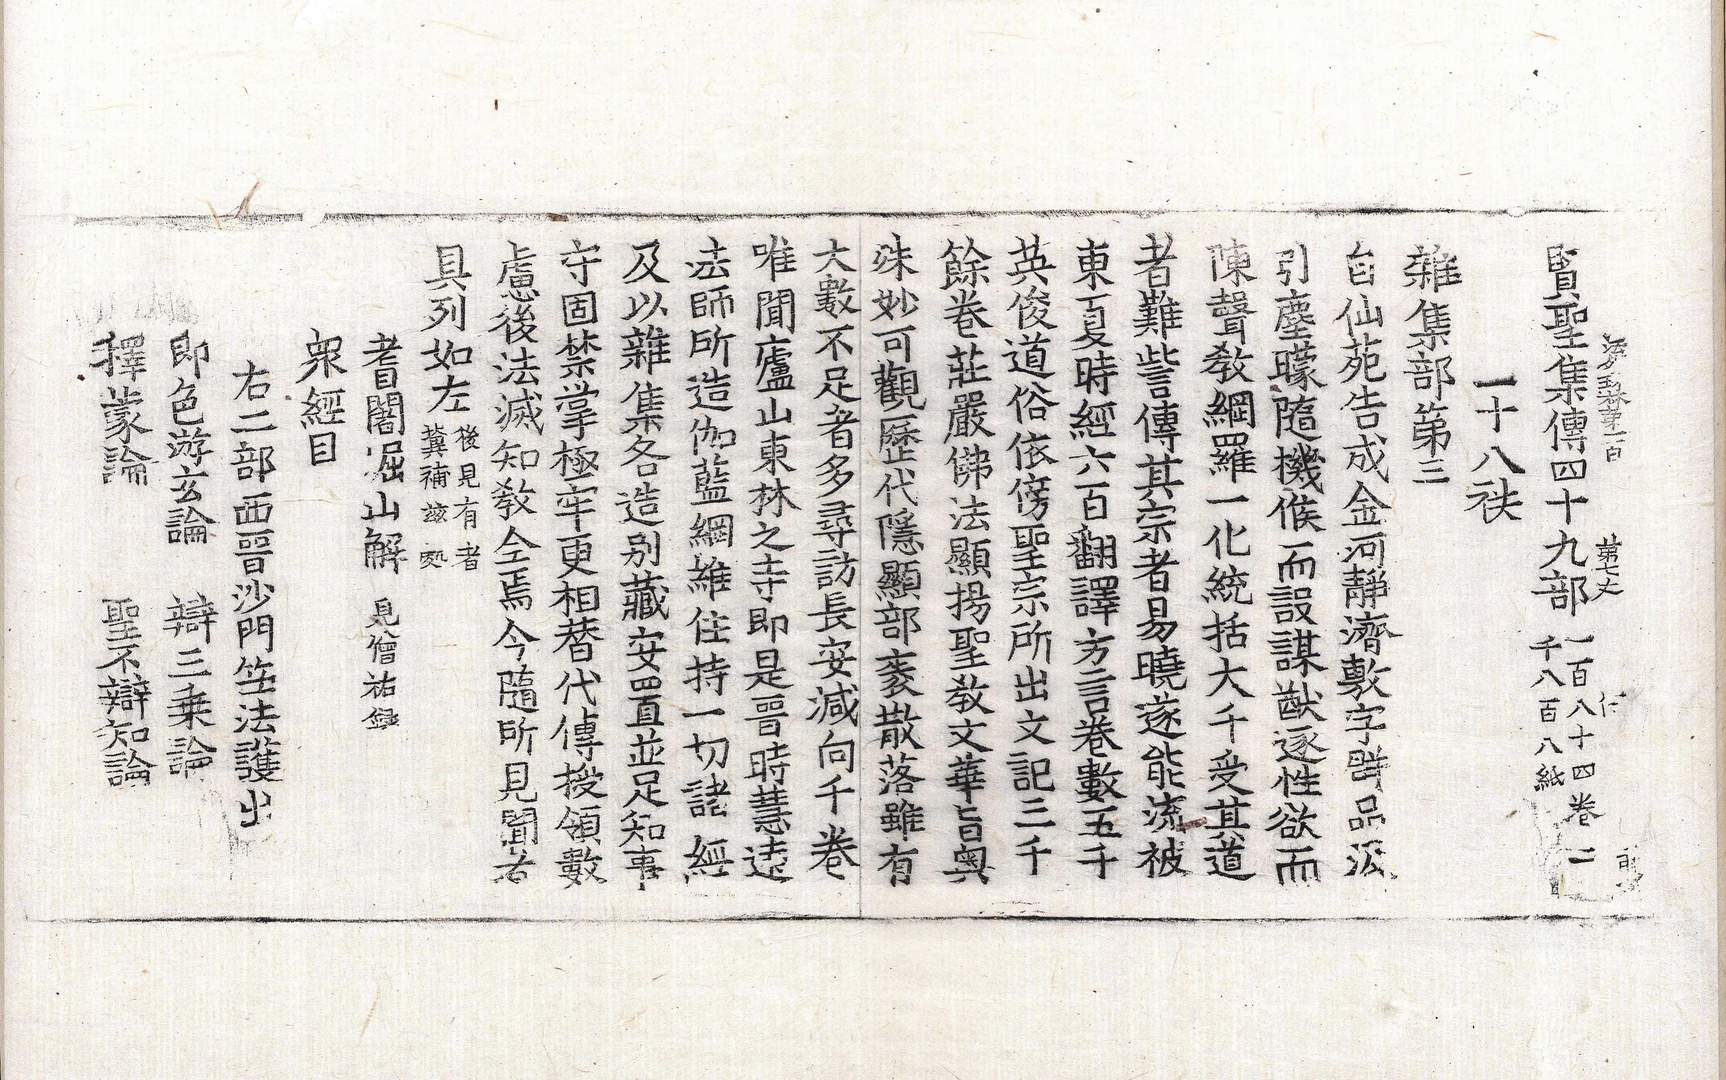 法苑珠林第一百 第七丈
賢聖集傳四十九部 一百八十四卷二
千八百八紙
一十八袟
雜集部第三
自仙苑告成金河靜濟敷字群品汲
引塵矇隨機候而設謀猷逐性欲而
陳聲教綱羅一化統括大千受其道
者難訾傳其宗者易曉遂能流被
東夏時經六百翻譯方言卷數五千
英俊道俗依傍聖宗所出文記三千
餘卷莊嚴佛法顯揚聖教文華旨奧
殊妙可觀歷代隱顯部袠散落雖有
大數不足者多尋訪長安減向千卷
唯聞廬山東林之寺即是晉時慧遠
法師所造伽藍綱維住持一切諸經
及以雜集各造別藏安置並足知事
守固禁掌極牢更相替代傳授領數
慮後法滅知教全焉今隨所見聞者
具列如左 後見有者
冀補茲處
耆闍崛山解 見僧祐錄
衆經目
右二部西晉沙門竺法護出
即色遊玄論 辯三乘論
釋蒙論 聖不辯知論